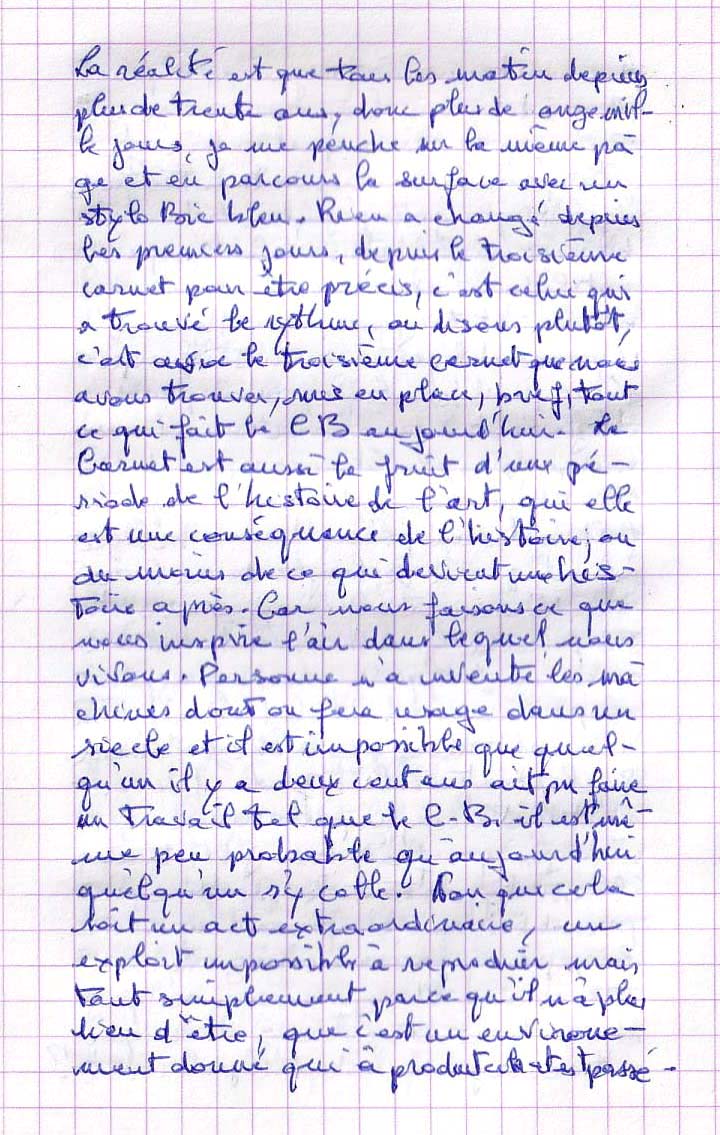 La réalité est que tous les matin depuis
plus de trente ans, donc plus de onze mil-
le jours, je me penche sur la même pa
ge et en parcours la surface avec un
stylo Bic bleu. Rien a changé depuis
les premiers jours, depuis le troisième
carnet pour être précis, c'est celui qui
a trouvé le rythme, ou disons plutôt,
c'est avec le troisième carnet que nous
avons trouver, mis en place, bref, tout
ce qui fait le CB aujourd'hui. Le
Carnet est aussi le fruit d'une pé-
riode de l'histoire de l'art, qui elle
est une conséquence de l'histoire, ou
du moins de ce qui devient une his-
toire après. Car nous faisons ce que
nous inspire l'air dans lequel nous
vivons. Personne n'a inventé les ma
chines dont on fera usage dans un
siecle et il est impossible que quel-
qu'un il y a deux cent ans ait pu faire
un travail tel que le C-B, il est mê-
me peu probable qu'aujourd'hui
quelqu'un s'y colle. Non que cela
soit un act extraordinaire, un
exploit impossible à reproduir mais
tout simplement parce qu'il n'a plus
lieu d'être, que c'est un environe-
ment donné qui à produit cela et est passé.